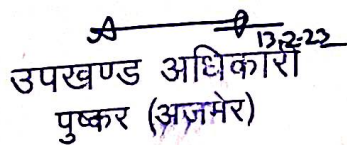 13-2-23
उपखण्ड अधिकारी
पुष्कर (अजमेर)